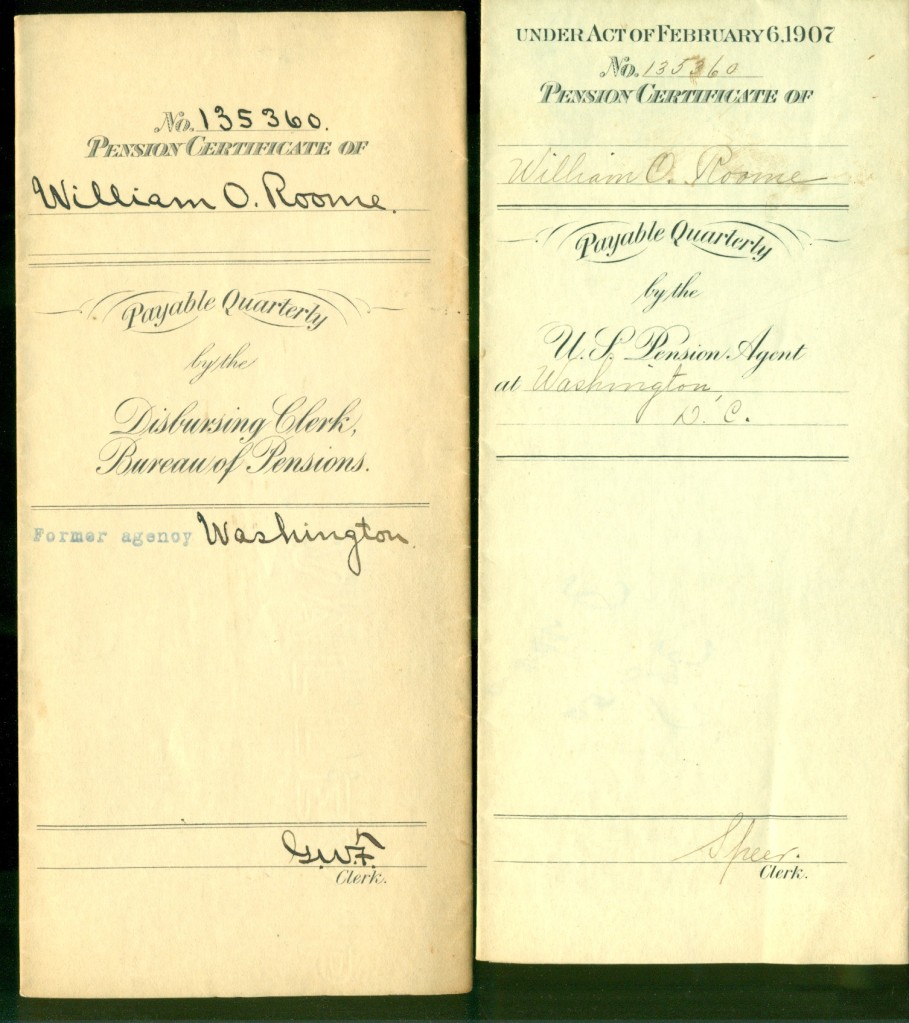 No. 135360.
PENSION CERTIFICATE OF
William O. Roome.
Payable Quarterly
by the
Disbursing Clerk,
Bureau of Pensions.
Former agency Washington
G.W.F.
Clerk.
UNDER ACT OF FEBRUARY 6, 1907
No. 135360
PENSION CERTIFICATE OF
William O. Roome
Payable Quarterly
by the
U.S. Pension Agent
at Washington,
D.C.
Speer.
Clerk.